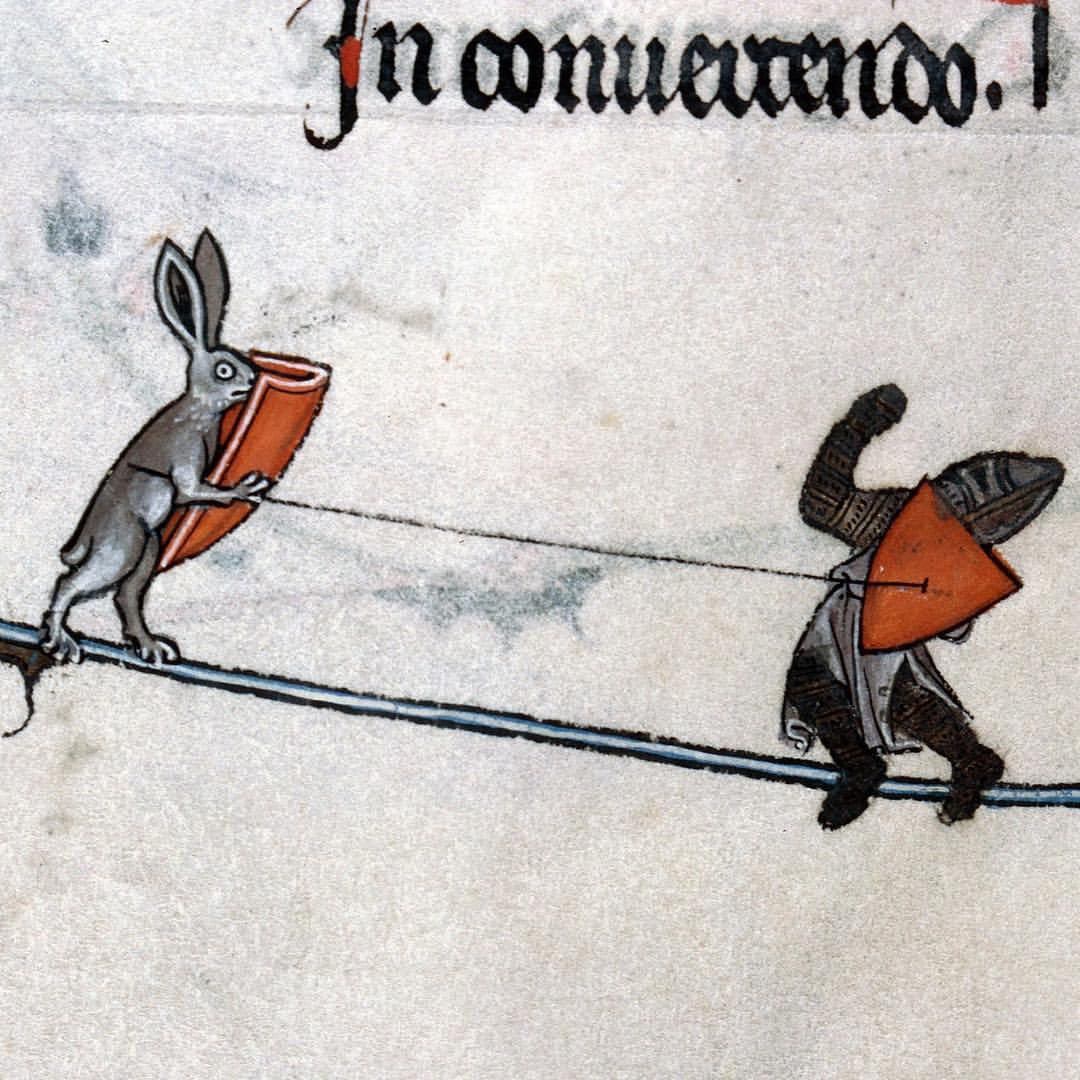 In conuertendo.